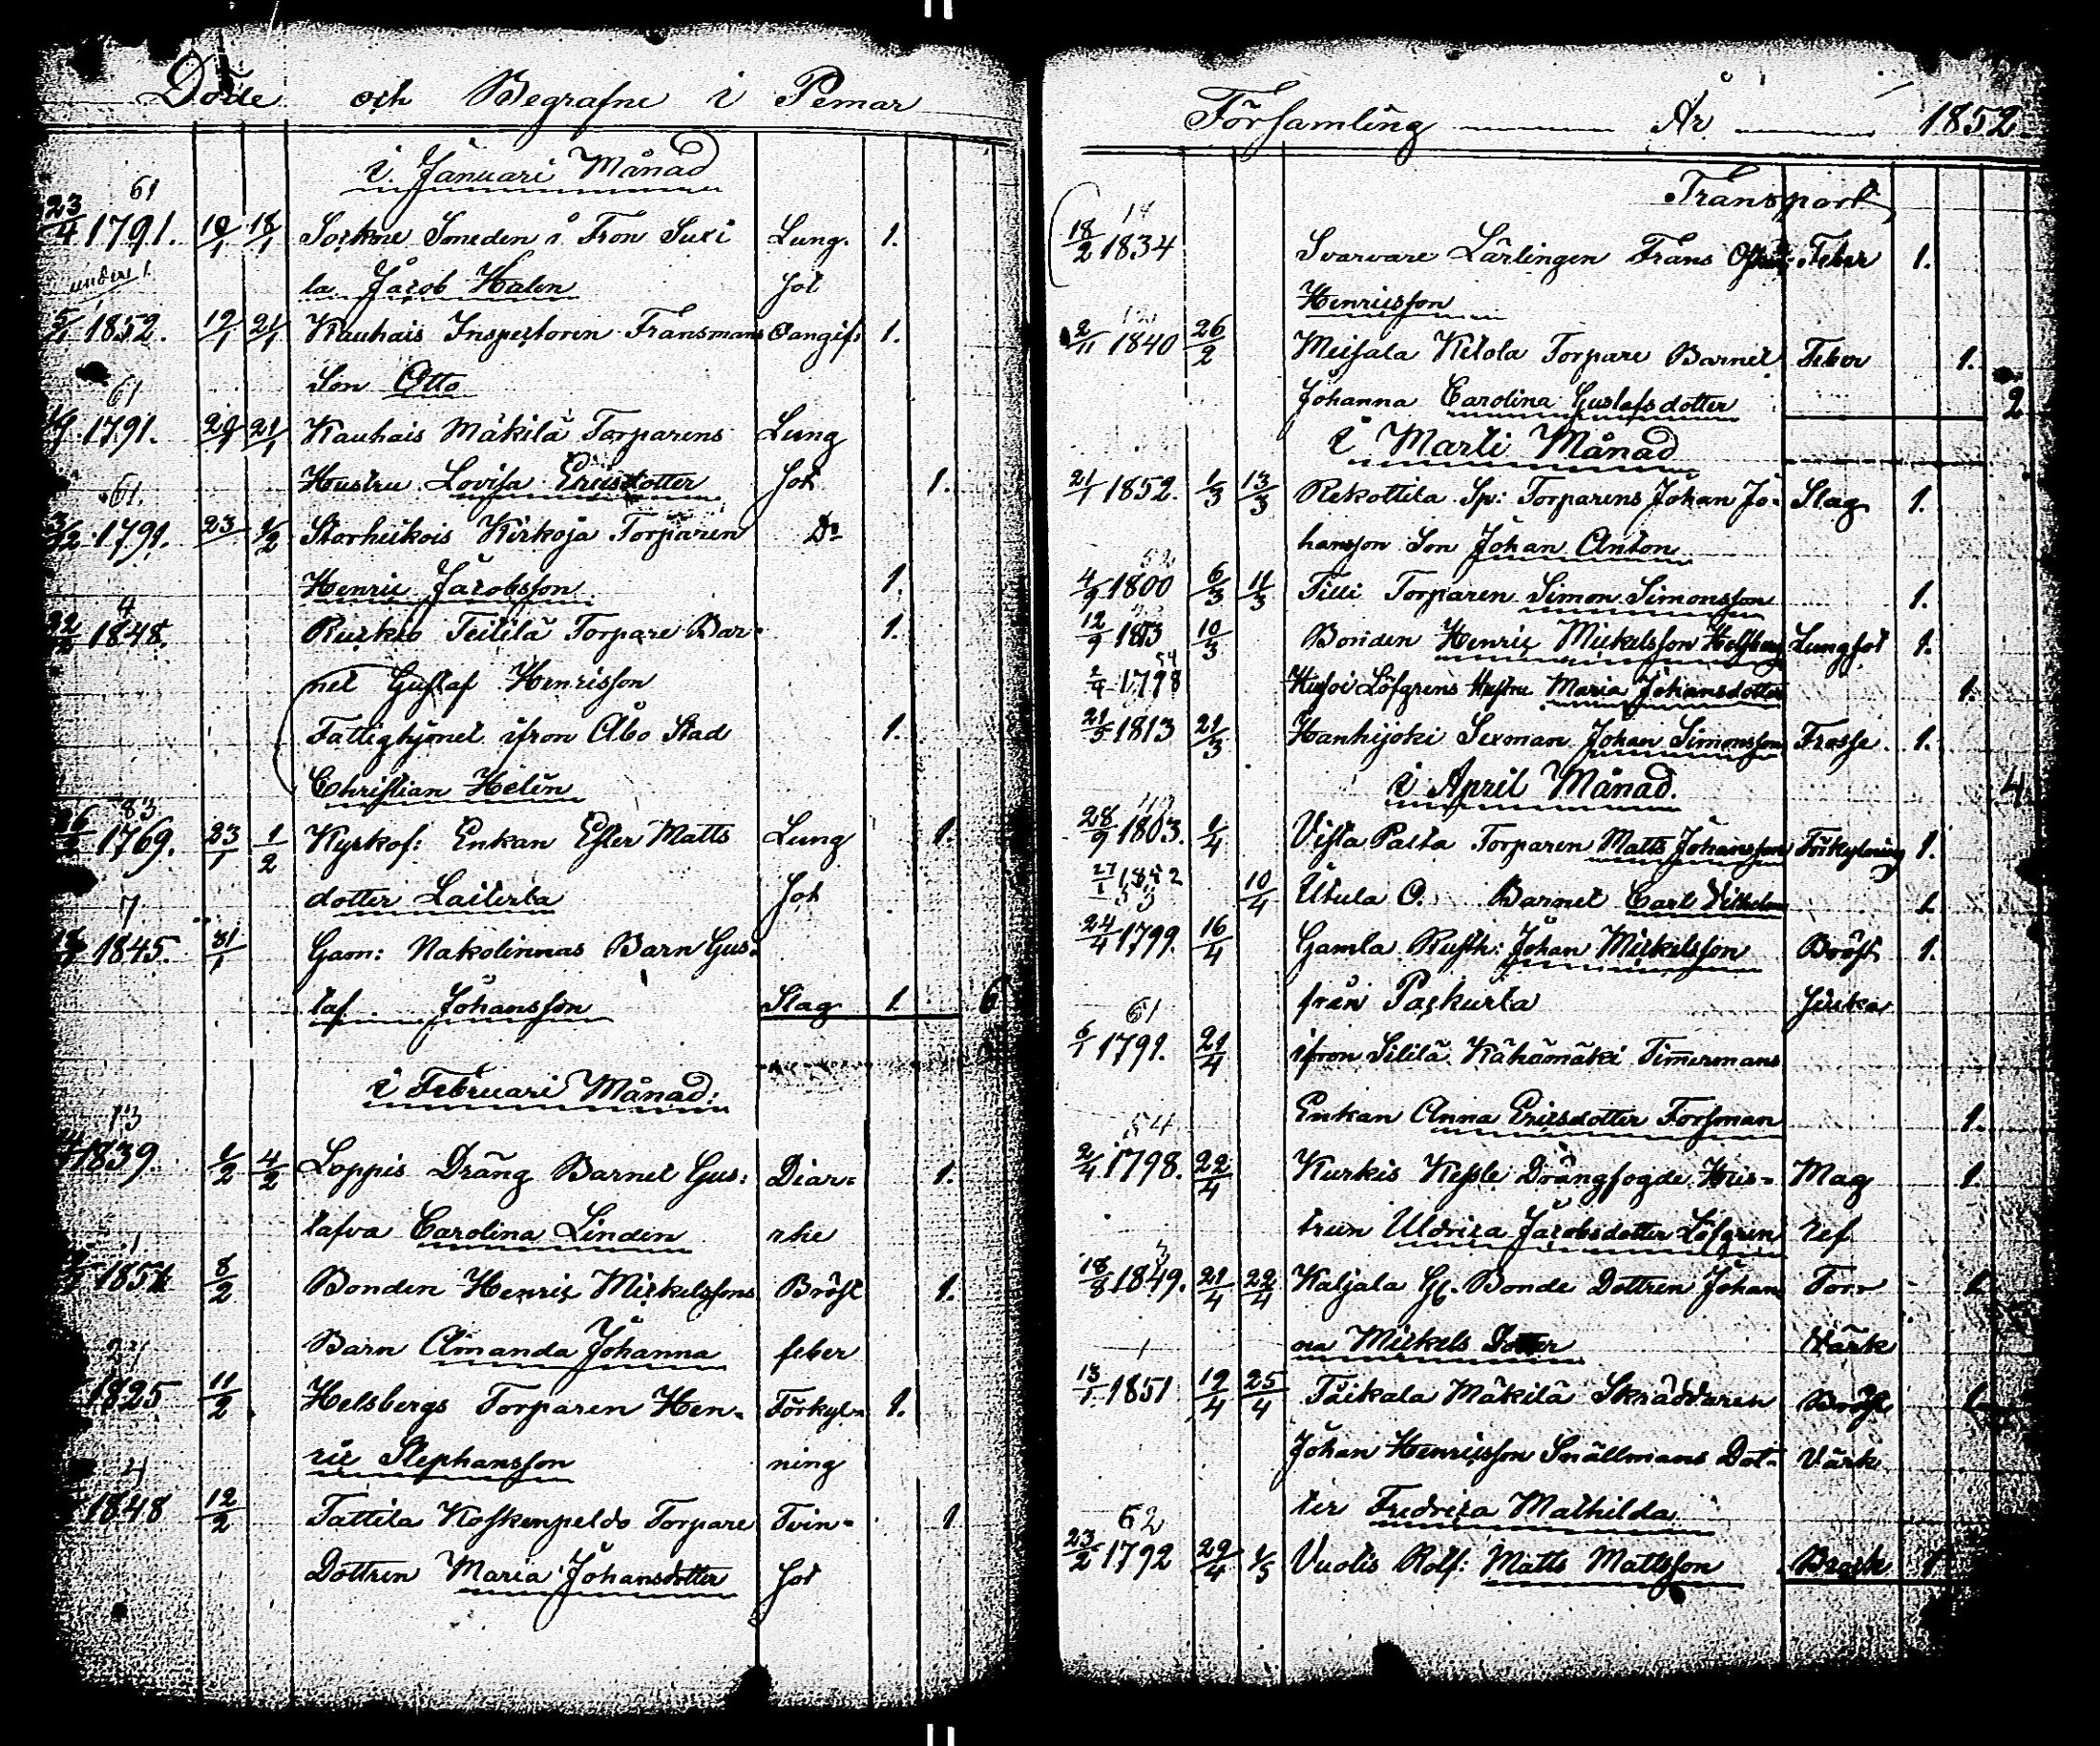 Döde och Begrafne i Pemar
i Januari Månad
61
23/4 1791. 10/1 18/1 Sockne Smeden i Tron Suxi Lung. 1.
under 1. la Jacob Halen Sot
5/1 1852. 19/1 21/1 Kauhais Inspectoren Fransmans Oangif: 1.
Son Otto
61
1791. 20/1 21/1 Kauhais Mäkilä Torparens Lung
Hustru Lovisa Ericsdotter Sot 1.
61.
1791. 23 1/2 Storheikois Kirkoja Torparen Do
Henric Jacobsson 1.
4
1848. Kurkis Teitilä Torpare Bar- 1.
net Gustaf Henricsson
Fattighjonet ifron Åbo Stad 1.
Christian Helin
83
1769. 23/1 1/2 Kyrkof: Enkan Ester Matts Lung 1.
dotter Laiterla Sot
7
1845. 31/1 Gam: Nakolinnas Barn Gus-
taf Johansson Slag 1. 6
i Februari Månad.
13
1839. 1/2 4/2 Loppis Dräng Barnet Gus: Diar- 1.
tafva Carolina Linden rhe
1
1851 8/2 Bonden Henric Mickelssons Bröst 1.
Barn Amanda Johanna feber
27
1825 11/2 Helsbergs Torparen Hen- Förkyl- 1.
ric Stephansson ning
4
1848 12/2 Tattila Koskenpeldo Torpare Tvin- 1
Dottren Maria Johansdotter Sot
Församling År 1852
Transport
18/2 1834 Svarvare Lärlingen Frans Feber 1.
Henricsson
2/11 1840 26/2 Meisala Ketola Torpare Barnet Feber 1.
Johanna Carolina Gustafsdotter 2
i Marti Månad
21/1 1852. 1/3 13/3 Rekottila Sp: Torparens Johan Jo- Slag 1.
hansson Son Johan Anton
4/9 1800 6/3 11/3 Tilli Torparen Simon Simonsson 1.
12/9 1813 10/3 Bonden Henric Mickelsson Helsberg Lungsot 1.
54
2/4 1798 Löfgrens Hustru Maria Johansdotter 1.
21/5 1813 21/3 Hanhijoki Sexman Johan Simonsson Frossa 1.
i April Månad. 4
28/9 1803. 1/4 Vista Palta Torparen Matts Johansson Förkylning 1.
27/1 1852 10/4 Utula O. Barnet Carl Vilhelm 1
53
24/4 1799. 16/4 Gamla Rusth: Johan Mickelsson Bröst 1.
från Paskurla Siuka
61
6/1 1791. 21/4 ifron Sililä Kähämäki Timermans
Enkan Anna Ericsdotter Forsman 1.
54
2/4 1798. 22/4 Kurkis Kessle Drängfogde Hus- Mag 1.
trun Uldrica Jacobsdotter Löfgren ref
3
18/8 1849. 21/4 22/4 Kaljala Gl. Bonde Dottren Johan Torr 1
na Mickels Dotter Värk
1
13/1 1851 19/4 25/4 Taikala Mäkilä Skräddaren Bröst 1.
Johan Henricsson Snällmans Dot- Värk
ter Fredrica Mathilda
62
23/2 1792 29/4 1/5 Vuolis Rolf: Matts Mattsson Brock 1